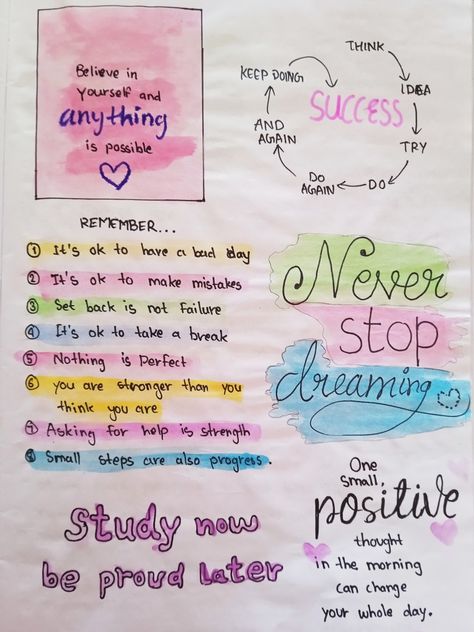 Believe in
yourself and
anything
is possible
THINK
IDEA
TRY
DO
DO
AGAIN
AND
AGAIN
KEEP DOING
SUCCESS
REMEMBER...
1 It's ok to have a bad day
2 It's ok to make mistakes
3 Set back is not Failure
4 It's ok to take a break
5 Nothing is Perfect
6 you are stronger than you
think you are
7 Asking for help is strength
8 Small steps are also progress.
Never
stop
dreaming
Study now
be proud Later
One
small,
positive
thought
in the morning
can change
your whole day.